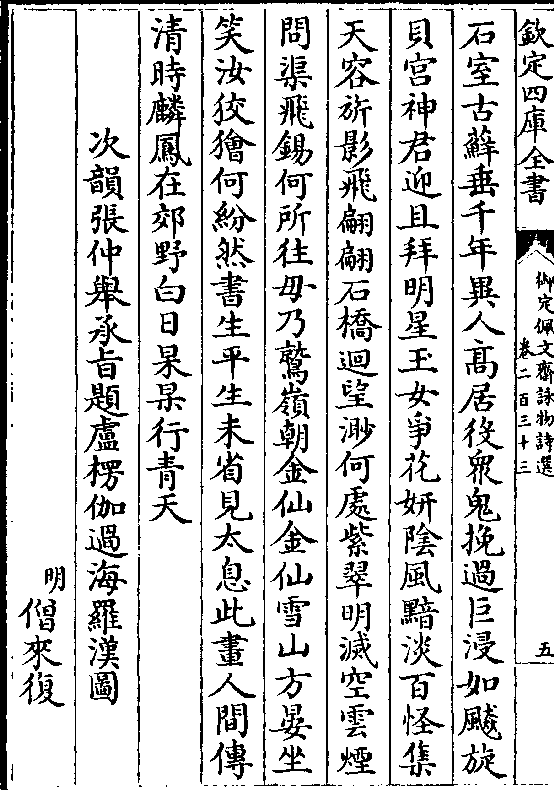 欽定四庫全書
御定佩文齋詠物詩選
卷二百三十三
五
石室古蘚垂千年異人高居役衆鬼挽過巨浸如飈旋
貝宫神君迎且拜明星玉女爭花妍陰風黯淡百怪集
天容旂影飛翩翩石橋迴望渺何處紫翠明滅空雲煙
問渠飛錫何所往毋乃鷲嶺朝金仙金仙雪山方晏坐
笑汝狡獪何紛然書生平生未省見太息此畫人間傳
清時麟鳳在郊野白日杲杲行青天
次韻張仲舉承旨題盧楞伽過海羅漢圖
明僧來復